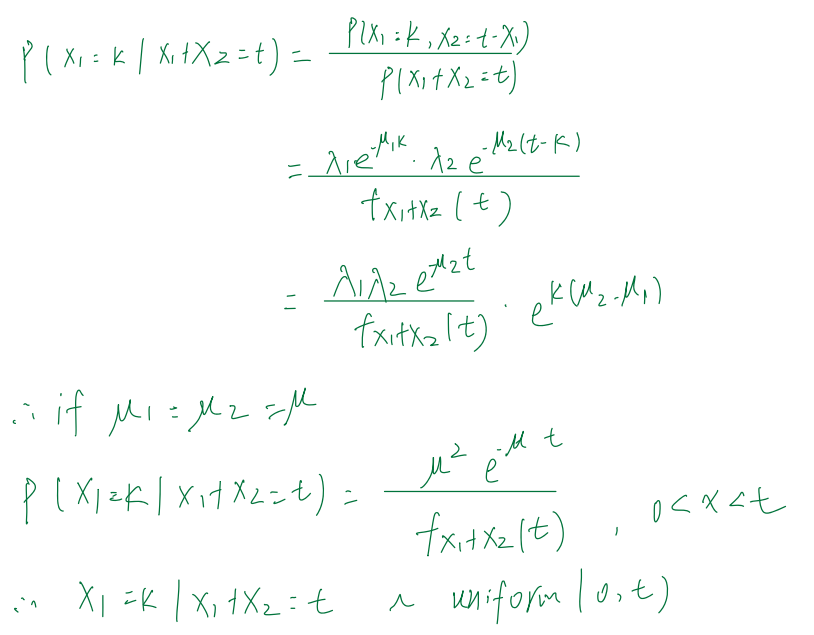 P(X₁=k | X₁+X₂=t) = P(X₁=k, X₂=t-X₁) / P(X₁+X₂=t)
= λ₁e^{-μ₁k} · λ₂e^{-μ₂(t-k)} / f_{X₁+X₂}(t)
= λ₁λ₂ e^{-μ₂t} / f_{X₁+X₂}(t) · e^{k(μ₂-μ₁)}
∴ if μ₁ = μ₂ = μ
P(X₁=k | X₁+X₂=t) = μ² e^{-μt} / f_{X₁+X₂}(t) , 0<x<t
∴ X₁=k | X₁+X₂=t ~ uniform(0,t)